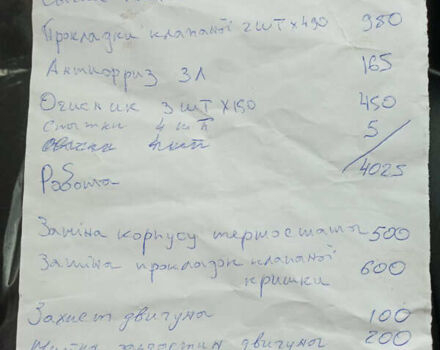 Прокладки клапаної 2 шт х 490 980
Антифриз 3л 165
Очисник 3 шт х 150 450
4 шт 5
4 шт
4025
Робота
Заміна корпусу термостата 500
Заміна прокладок клапаної
кришки 600
Захист двигуна 100
двигуна 200